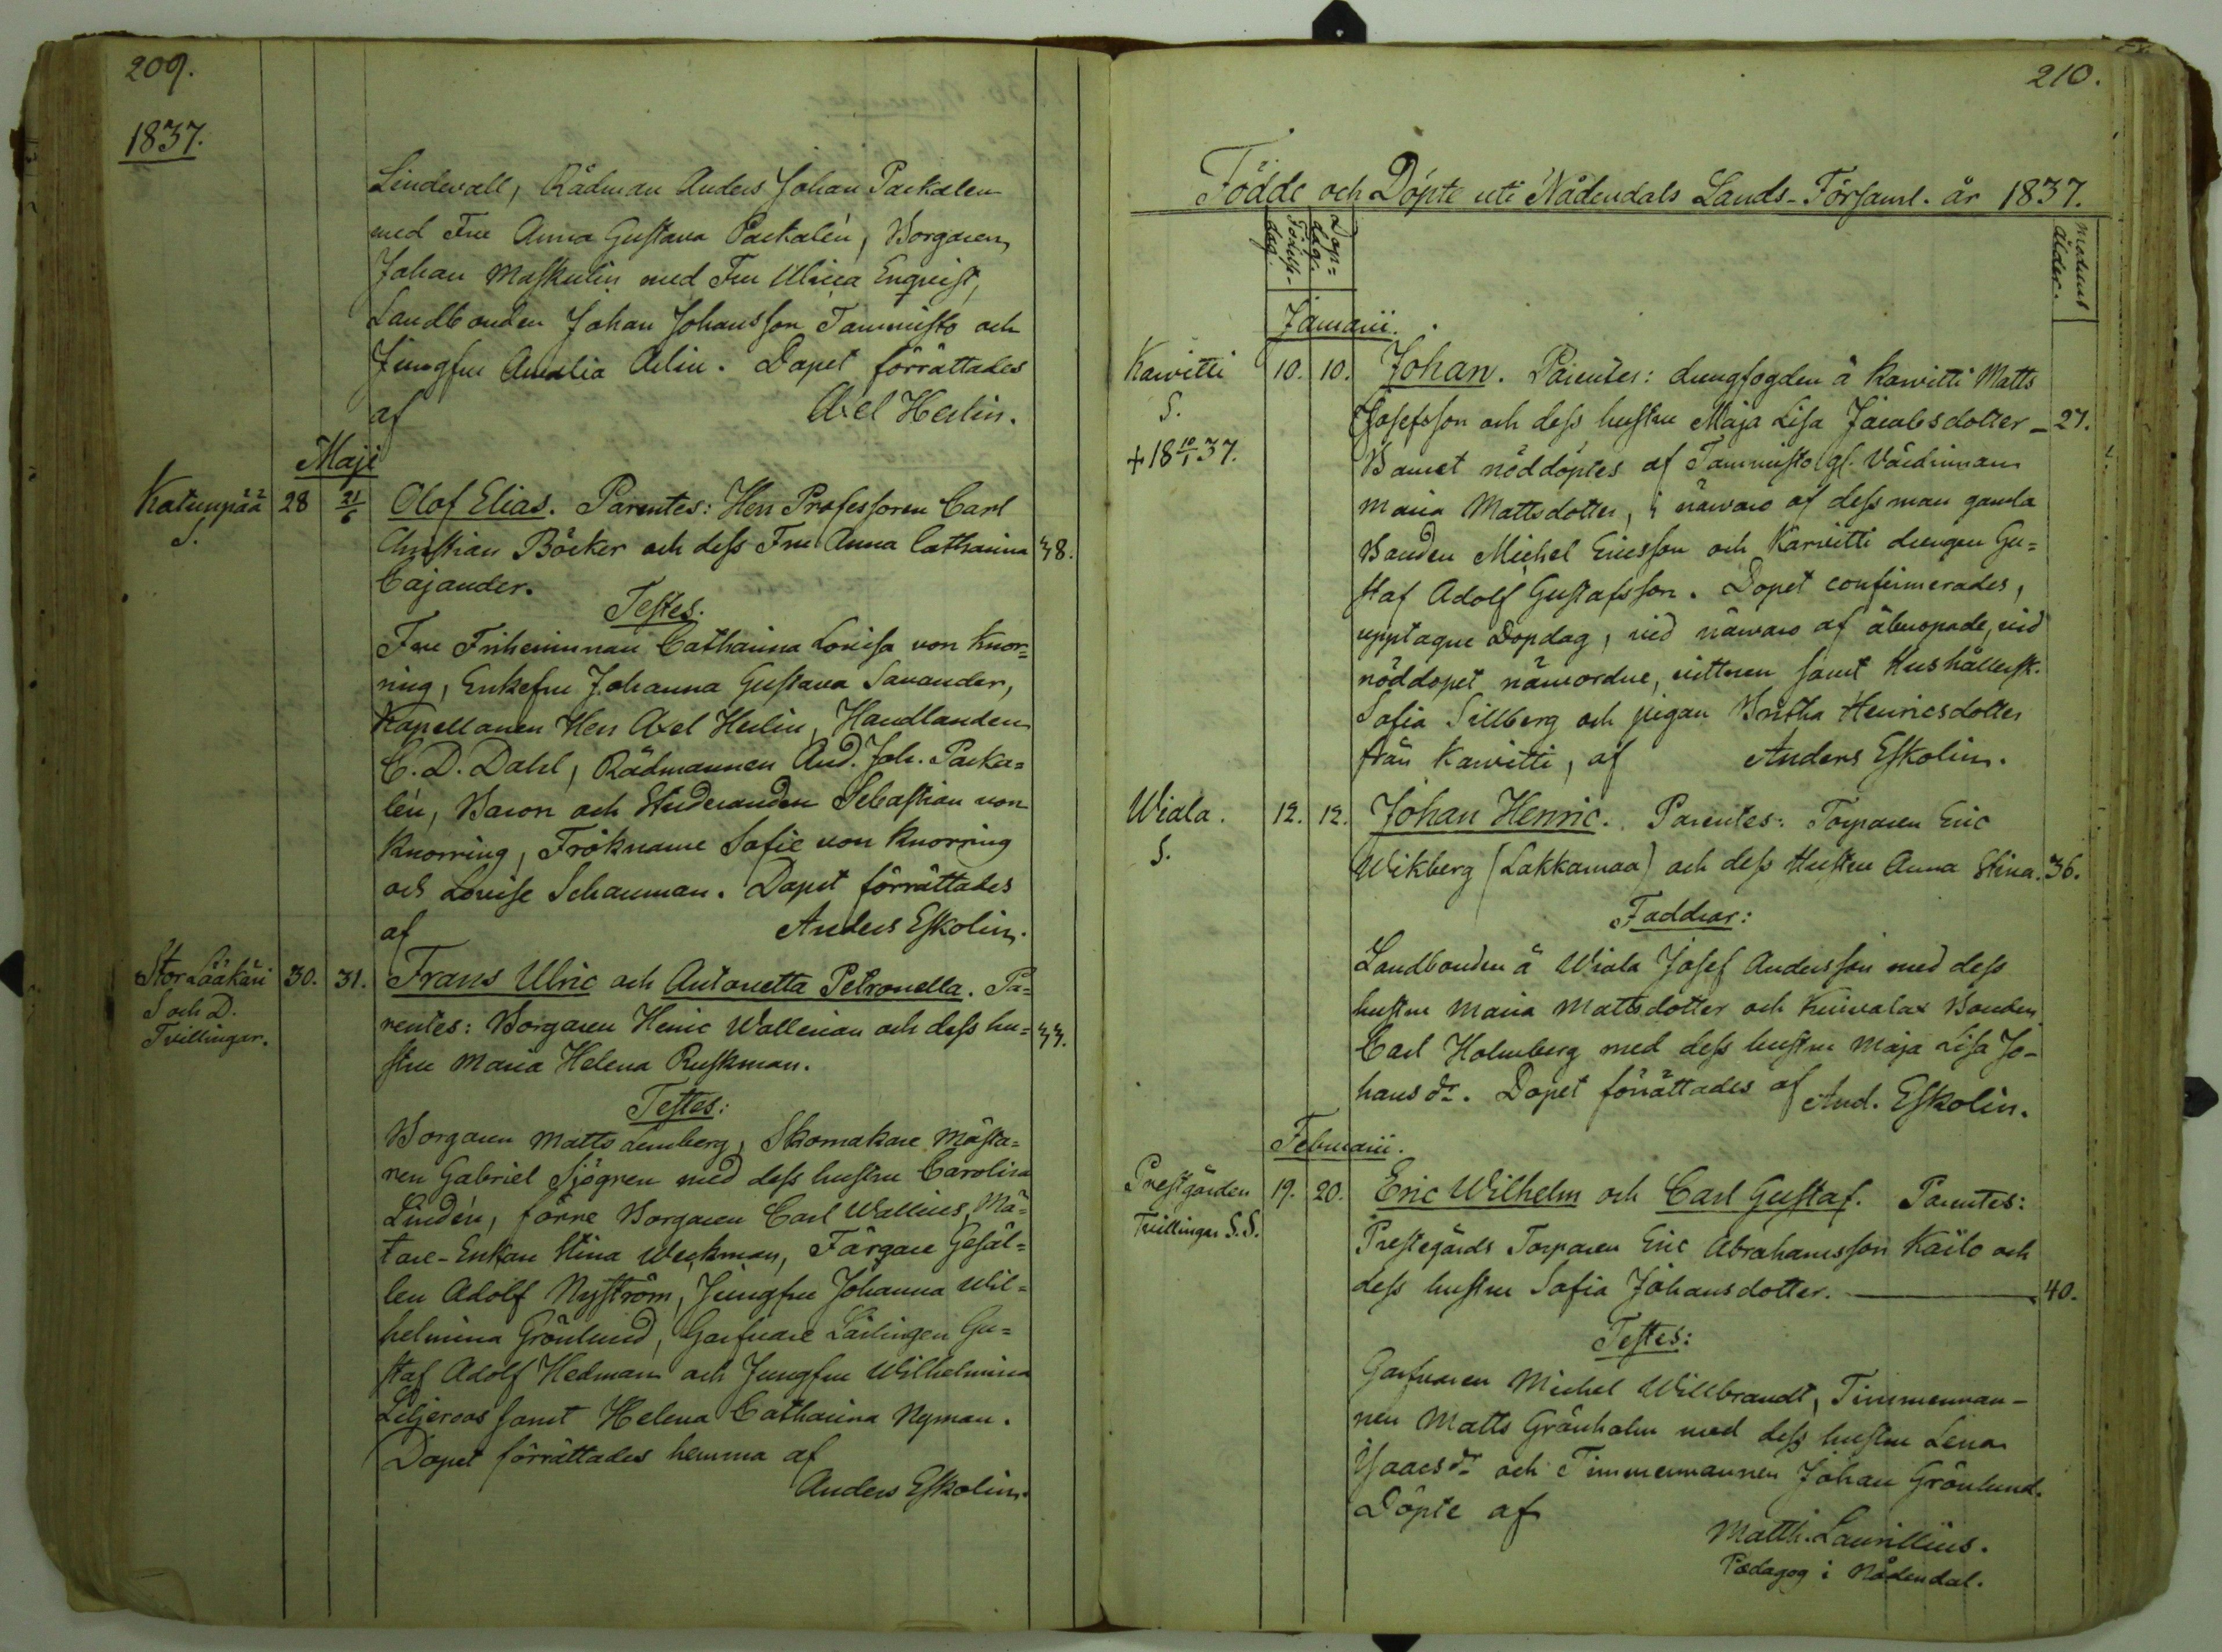 209.
1837.
Lindewall, Rådman Anders Johan Packalen
med Fru Anna Gustava Packalén, Borgaren
Johan Maskulin med Fru Ulrica Enqvist,
Landbonden Johan Johansson Tammisto och
Jungfru Amalia Arlin. Dopet förrättades
af Axel Herlin.
Maji
Katumpää 28 21/6 Olof Elias. Parentes: Herr Professoren Carl
S. Christian Böcker och dess Fru Anna Catharina 38.
Cajander.
Testes.
Fru Friherinnan Catharina Lovisa von Knor=
ring, Enkefru Johanna Gustava Savander,
Kapellanen Herr Axel Herlin, Handlanden
C. D. Dahl, Rådmannen And. Joh. Packa=
lén, Baron och Studeranden Sebastian von
Knorring, Fröknarne Sofie von Knorring
och Louise Schauman. Dopet förrättades
af Anders Eskolin.
Stor Lääkäri 30. 31. Frans Ulric och Antonetta Petronella. Pa=
S och D. rentes: Borgaren Henric Wallenian och dess hu= 33.
Tvillingar. stru Maria Helena Ruskman.
Testes:
Borgaren Matts Lemberg, Skomakare Mästa=
ren Gabriel Sjögren med dess hustru Carolina
Lindén, förre Borgaren Carl Wallius, Må=
lare-Enkan Stina Weckman, Färgare Gesäl=
len Adolf Nyström, Jungfru Johanna Wil=
helmina Grönlund, Garfvare Lärlingen Gu=
staf Adolf Hedman och Jungfru Wilhelmina
Liljeroos samt Helena Catharina Nyman.
Dopet förrättades hemma af
Anders Eskolin.
210.
Födde och Döpte uti Nådendals Lands-Församl. år 1837.
Födelse-dag. Dop=dag. Modrens ålder.
Januarii.
Karvitti 10. 10. Johan. Parentes: drengfogden å Karvitti Matts
S. Josefsson och dess hustru Maja Lisa Jacobsdotter - 27.
+ 18 10/1 37. Barnet nöddöptes af Tammisto gl. Värdinnan
Maria Mattsdotter, i närvaro af dess man gamla
Bonden Michel Ericsson och Karvitti drengen Gu=
staf Adolf Gustafsson. Dopet confirmerades,
upptagne Dopdag, vid närvaro af åberopade, vid
nöddopet närvordne, vittnen samt Hushållersk.
Sofia Sillberg och pigan Britha Henricsdotter
från Karvitti, af Anders Eskolin.
Wiala. 12. 12. Johan Henric. Parentes: Torparen Eric
S. Wikberg (Lakkamaa) och dess Hustru Anna Stina. 36.
Faddrar:
Landbonden å Wiala Josef Andersson med dess
hustru Maria Mattsdotter och Kuivalax Bonden
Carl Holmberg med dess hustru Maja Lisa Jo-
hansdr. Dopet förrättades af And. Eskolin.
Februarii.
Prestgården 19. 20. Eric Wilhelm och Carl Gustaf. Parentes:
Tvillingar S.S. Prestegårds Torparen Eric Abrahamsson Kailo och
dess hustru Sofia Johansdotter. 40.
Testes:
Garfvaren Michel Willbrandt, Timmerman-
nen Matts Grönholm med dess hustru Lena
Isaacsdr och Timmermannen Johan Grönlund.
Döpte af
Matth. Laurillius.
Pædagog i Nådendal.